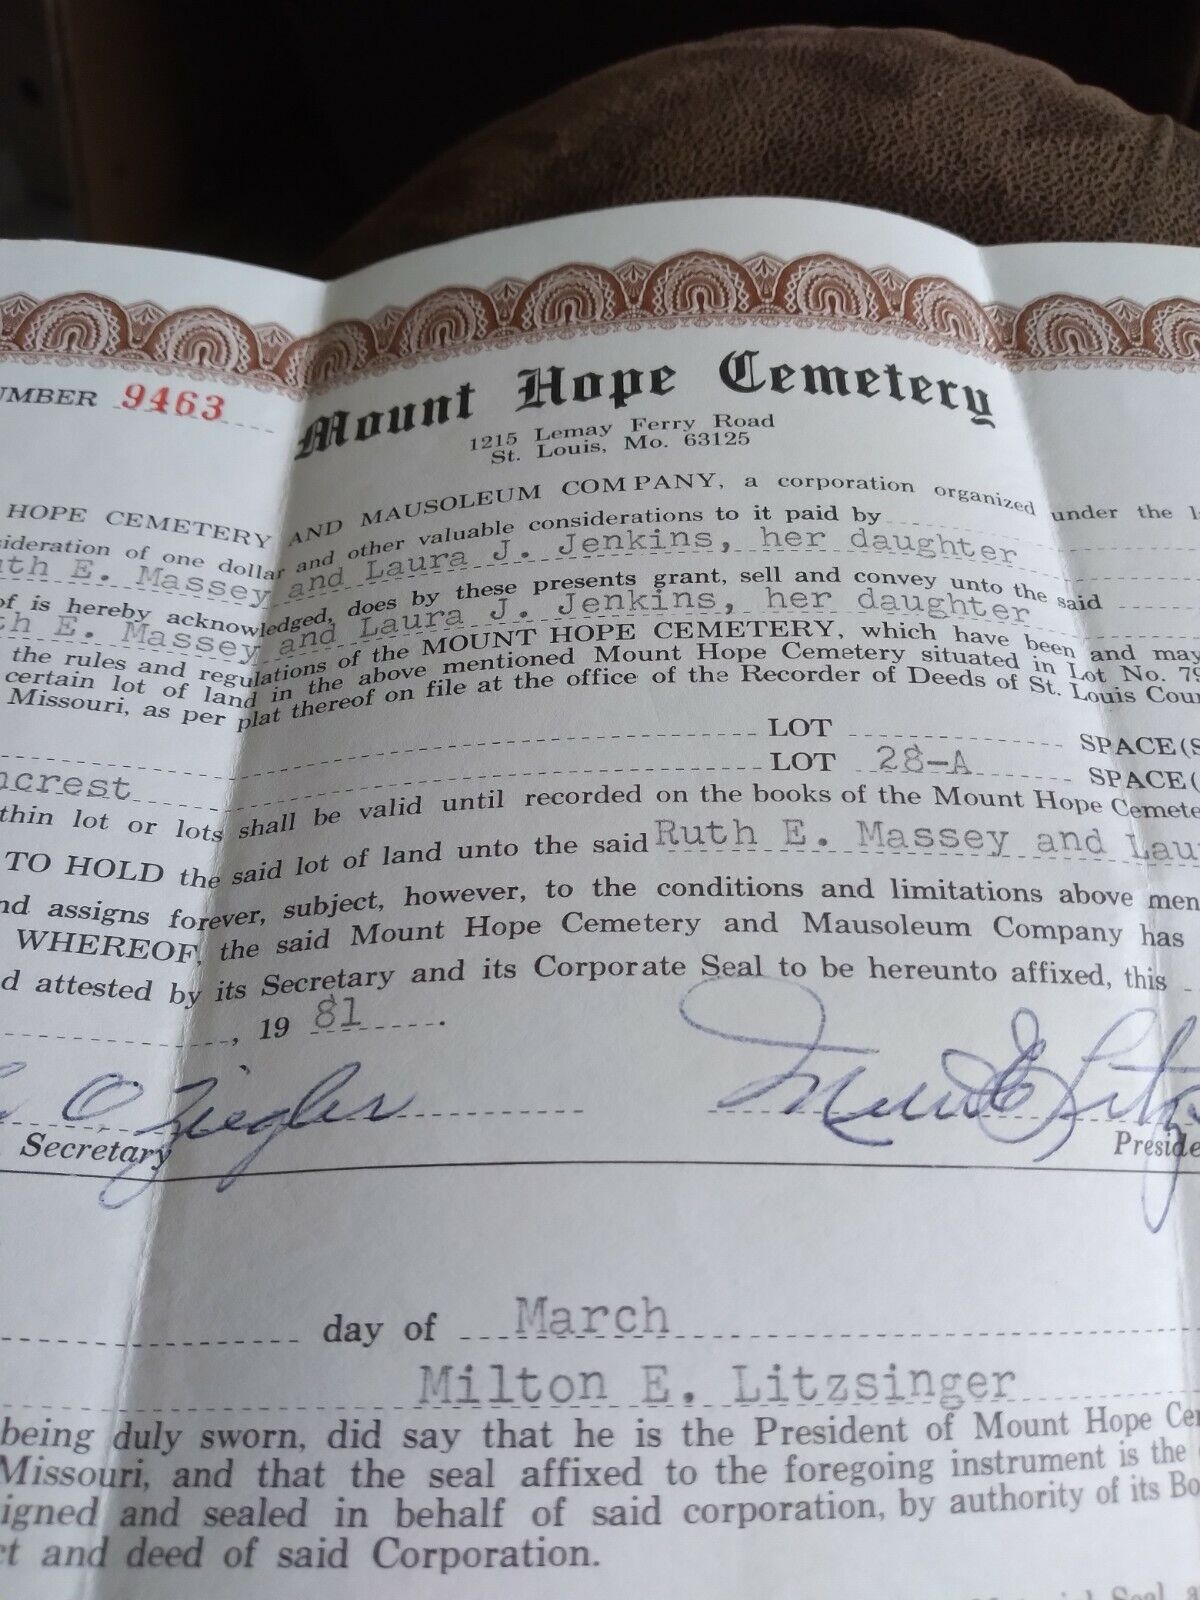 UMBER 9463
Mount Hope Cemetery
1215 Lemay Ferry Road
St. Louis, Mo. 63125
HOPE CEMETERY AND MAUSOLEUM COMPANY, a corporation organized under the
sideration of one dollar and other valuable considerations to it paid by
uth E. Massey and Laura J. Jenkins, her daughter
of is hereby acknowledged, does by these presents grant, sell and convey unto the said
th E. Massey and Laura J. Jenkins, her daughter
the rules and regulations of the MOUNT HOPE CEMETERY, which have been and may
certain lot of land in the above mentioned Mount Hope Cemetery situated in Lot No. 79
Missouri, as per plat thereof on file at the office of the Recorder of Deeds of St. Louis Coun
LOT SPACE(S
ncrest LOT 28-A SPACE(
thin lot or lots shall be valid until recorded on the books of the Mount Hope Cemete
TO HOLD the said lot of land unto the said Ruth E. Massey and Lau
nd assigns forever, subject, however, to the conditions and limitations above men
WHEREOF, the said Mount Hope Cemetery and Mausoleum Company has
d attested by its Secretary and its Corporate Seal to be hereunto affixed, this
, 19 81 .
O. Ziegler Milton E. Litz
Secretary Preside
day of March
Milton E. Litzsinger
being duly sworn, did say that he is the President of Mount Hope Ce
Missouri, and that the seal affixed to the foregoing instrument is the
igned and sealed in behalf of said corporation, by authority of its Bo
ct and deed of said Corporation.
Seal